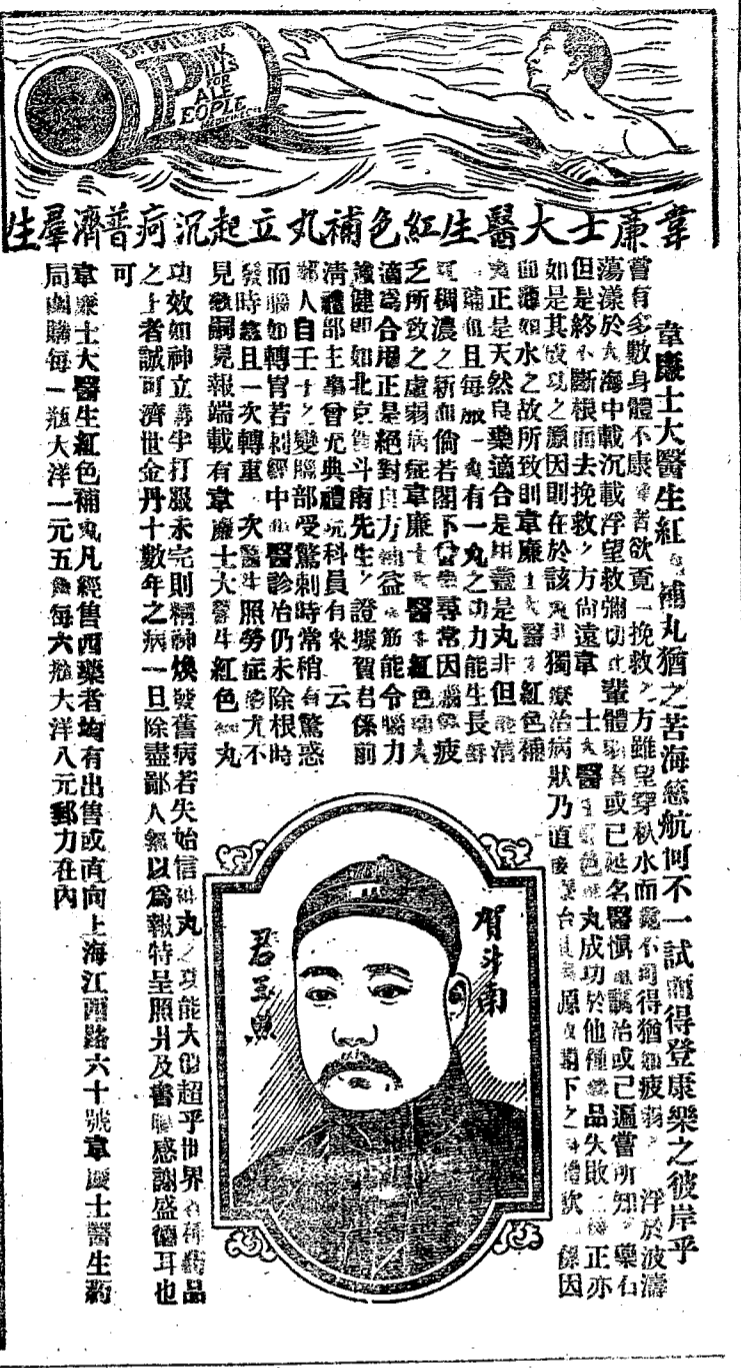 DR WILLIAMS
PINK
PILLS
FOR
PALE
PEOPLE
韋廉士大醫生紅色補丸立起沉疴普濟羣生
韋廉士大醫生紅補丸猶之苦海慈航何不一試而得登康樂之彼岸乎
嘗有多數身體不康者欲覓一挽救之方雖望穿秋水而竟不可得猶如疲弱浮於波濤
蕩漾於大海中載沉載浮望救彌切此輩體弱者或已延名醫慎重調治或已遍嘗所知藥石
但是終不斷根而去挽救之方尚遠韋士大醫生紅色補丸成功於他種藥品失敗之後正亦
如是其成功之源因則在於該丸非獨療治病狀乃直原故閣下之身體軟係因
血薄如水之故所致則韋廉士大醫生紅色補
丸正是天然良藥適合是用蓋是丸非但能清
補血且每服一丸有一丸之功力能生長鮮
紅稠濃之新血倘若閣下曾患尋常因腦疲
乏所致之虛弱病症韋廉士大醫生紅色補丸
適為合用正是絕對良方補益筋能令腦力
強健即如北京賀斗南先生之證據賀君係前
清禮部主事曾充典禮院科員有來云
鄙人自壬子之變腦部受驚刺時常稍有驚惑
而腸如轉胃若刺經中西醫診治仍未除根時
發時愈且一次轉重一次醫生照勞症治尤不
見效嗣見報端載有韋廉士大醫生紅色補丸
功效如神立購半打服未完則精神煥發舊病若失始信此丸之功能大超乎世界各種藥品
之上者誠可濟世金丹十數年之病一旦除盡鄙人無以為報特呈照片及書聯感謝盛德耳也
可
韋廉士大醫生紅色補丸凡經售西藥者均有出售或直向上海江西路六十號韋廉士醫生藥
局函購每一瓶大洋一元五角每六瓶大洋八元郵力在內
賀斗南
君玉照